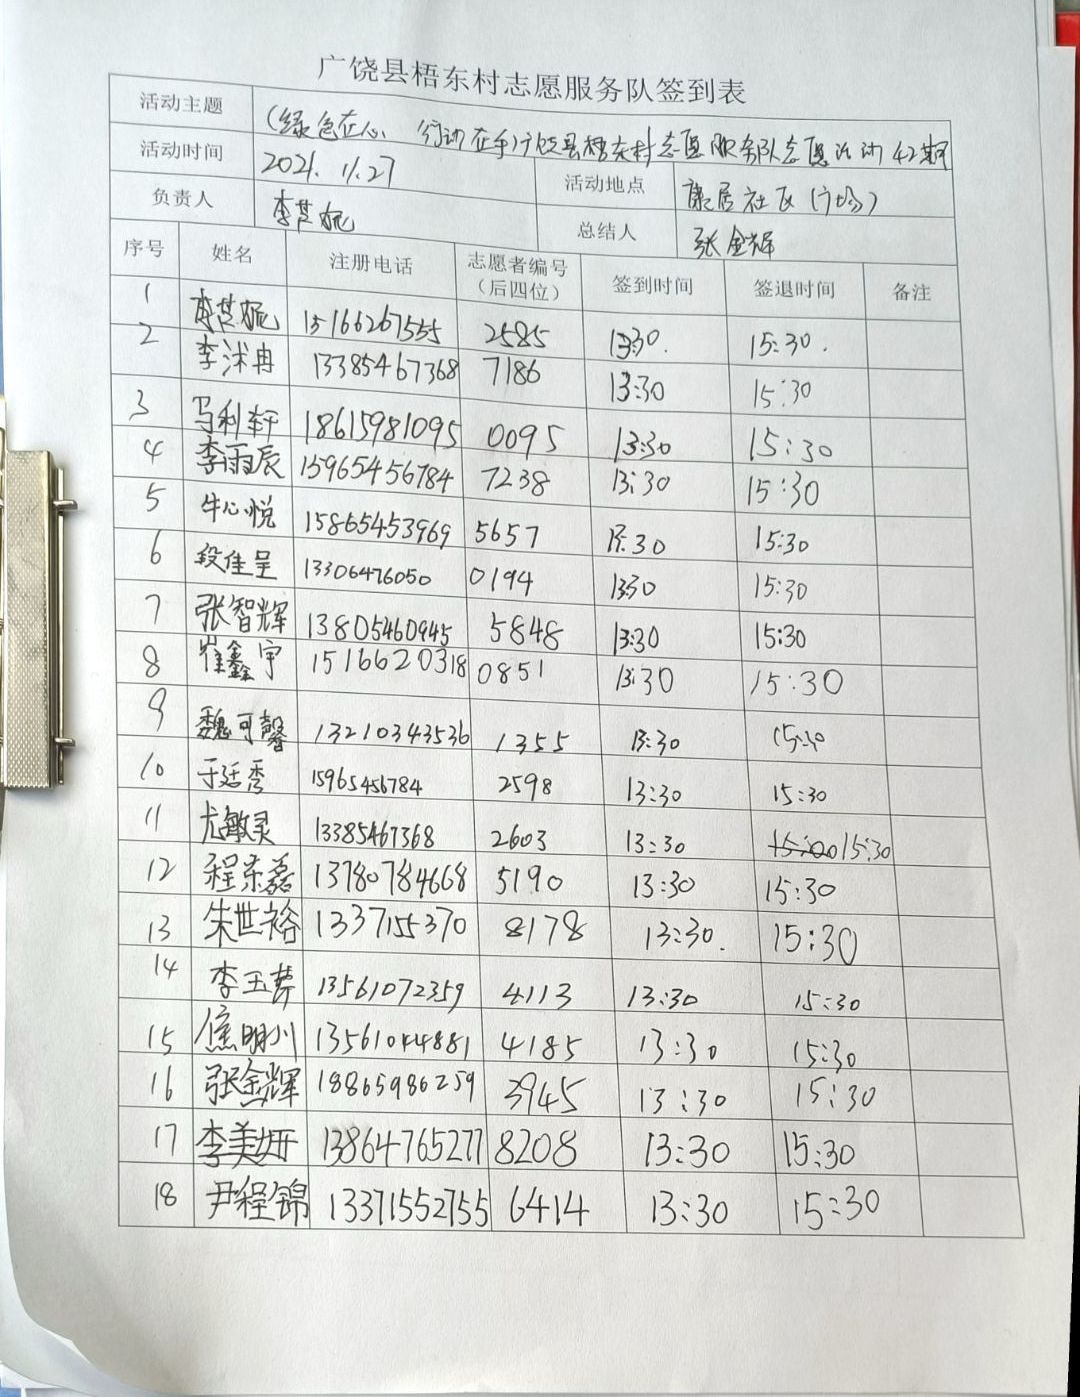 广饶县梧东村志愿服务队签到表
活动主题 (绿色在心 行动在手)广饶县梧东村志愿服务队志愿活动42期
活动时间 2021.11.27 活动地点 康居社区(广场)
负责人 李其妮 总结人 张金辉
序号 姓名 注册电话 志愿者编号(后四位) 签到时间 签退时间 备注
1 李其妮 15166267555 2585 13:30. 15:30.
2 李沭冉 13385467368 7186 13:30 15:30
3 马利轩 18615981095 0095 13:30 15:30
4 李雨辰 15965456784 7238 13:30 15:30
5 牛心悦 15865453969 5657 13:30 15:30
6 段佳呈 13306476050 0194 13:30 15:30
7 张智辉 13805460945 5848 13:30 15:30
8 崔鑫宇 15166620318 0851 13:30 15:30
9 魏可馨 13210343536 1355 13:30 15:30
10 于廷秀 15965456784 2598 13:30 15:30
11 尤敏灵 13385467368 2603 13:30 15:00 15:30
12 程东磊 13780784668 5190 13:30 15:30
13 朱世裕 1337155370 8178 13:30. 15:30
14 李玉 13561072359 4113 13:30 15:30
15 焦明川 13561044881 4185 13:30 15:30
16 张金辉 18865986259 3945 13:30 15:30
17 李美妍 13864765277 8208 13:30 15:30
18 尹程锦 13371552755 6414 13:30 15:30